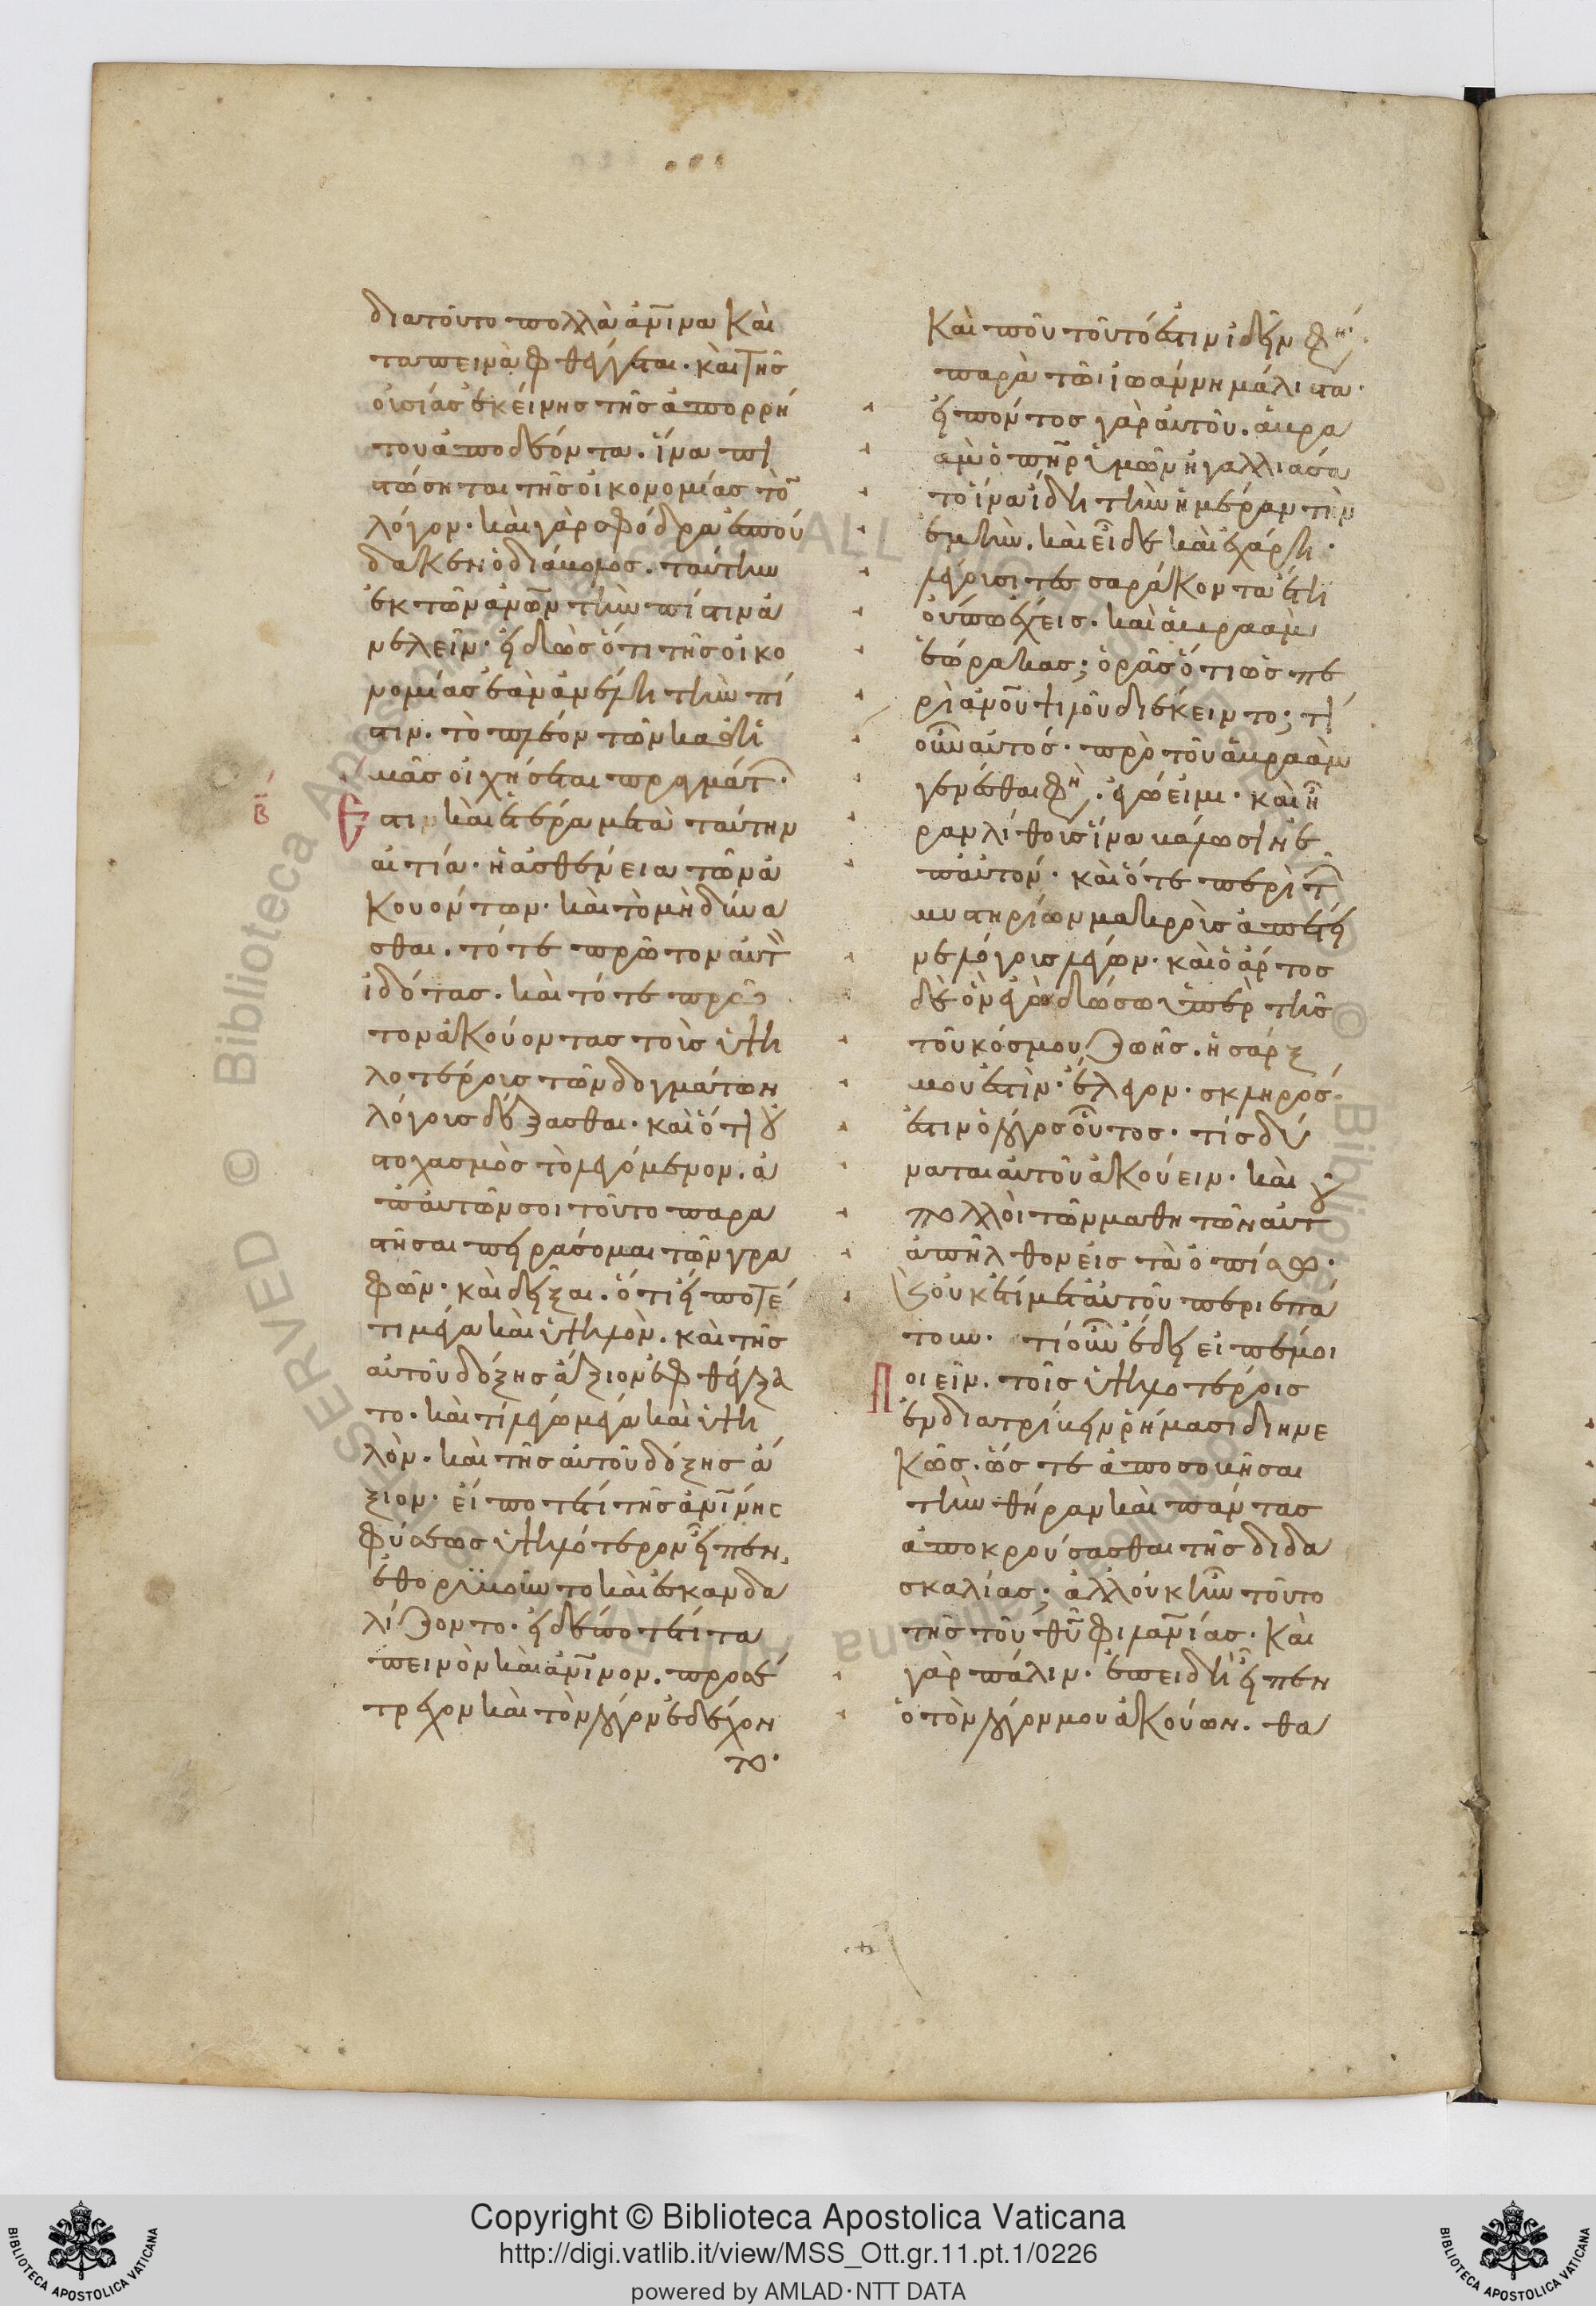 διατοῦτο πολλὰ ἀν̅ινα καὶ
ταπεινὰ φθέγγεται. καὶ τῆς
οὐσίας ἐκείνης τῆς ἀπορρή
του ἀποδέοντα. ἵνα πι
στώσηται τῆς οἰκονομίας τὸ
λόγον. καὶ γὰρ σφόδρα ἐσπού
δακεν ὁ διάβολος. ταύτην
ἐκ τῶν ἀν̅ων τὴν πίστιν ἀ
νελεῖν. εἰδὼς ὅτι τῆς οἰκο
νομίας ἐὰν ἀνέλῃ τὴν πί
στιν. τὸ πλέον τῶν καθ ἡ
μᾶς οἰχήσεται πραγμάτ
β
Ἔστιν καὶ ἑτέρα μετὰ ταύτην
αἰτία. ἡ ἀσθένεια τῶν ἀ
κουόντων. καὶ τὸ μὴ δύνα
σθαι. τότε πρῶτον αὐτ
ἰδόντας. καὶ τότε πρῶ
τον ἀκούοντας τοῖς ὑψη
λοτέροις τῶν δογμάτων
λόγοις δέξασθαι. καὶ ὅτι οὐ
στοχασμὸς τὸ λεγόμενον. ἀ
π αὐτῶν σοι τοῦτο παρα
στῆσαι πειράσομαι τῶν γρα
φῶν. καὶ δεῖξαι. ὅτι εἴποτέ
τι μέγα καὶ ὑψηλὸν. καὶ τῆς
αὐτοῦ δόξης ἄξιον ἐφθέγξα
το. καὶ τί λέγω μέγα καὶ ὑψη
λὸν. καὶ τῆς αὐτοῦ δόξης ἄ
ξιον. εἴ ποτέ τι τῆς ἀν̅ίνης
φύσεως ὑψηλότερον εἶπεν,
ἐθορυβοῦντο καὶ ἐσκανδα
λίζοντο. εἰ δέ ποτέ τι τα
πεινὸν καὶ ἀν̅ινον. προσέ
τρεχον καὶ τὸν λόγον ἐδέχον
το.
Καὶ ποῦ τοῦτό ἐστιν ἰδεῖν φη
παρὰ τῶι ἰωάννη μάλιστα.
εἰπόντος γὰρ αὐτοῦ. ἀβρα
ὰμ ὁ π̅η̅ρ ὑμῶν ἠγαλλιάσα
το ἵνα ἴδῃ τὴν ἡμέραν τὴν
ἐμήν. καὶ εἶδε καὶ ἐχάρη.
λέγουσι τεσσαράκοντα ἔτη
οὔπω ἔχεις. καὶ ἀβραὰμ
ἑώρακας; ὁρᾶς ὅτι ὡς πε
ρὶ ἀν̅ου ψιλοῦ διέκειντο; τί
οὖν αὐτός. πρὸ τοῦ ἀβραὰμ
γενέσθαι φη. ἐγώ εἰμι. καὶ ἦ
ραν λίθους ἵνα βάλωσιν ἐ
π αὐτόν. καὶ ὅτε περὶ τ
μυστηρίων μακροὺς ἀπέτει
νε λόγους λέγων. καὶ ὁ ἄρτος
δὲ ὃν ἐγὼ δώσω ὑπὲρ τῆς
τοῦ κόσμου ζωῆς. ἡ σάρξ
μου ἐστὶν. ἔλεγον. σκληρός
ἐστιν ὁ λόγος οὗτος. τίς δύ
ναται αὐτοῦ ἀκούειν. καὶ
πολλοὶ τῶν μαθητῶν αὐτ
ἀπῆλθον εἰς τὰ ὀπίσω.
καὶ οὐκέτι μετ αὐτοῦ περιεπά
τουν. τί οὖν ἔδει εἰπέ μοι
Ποιεῖν. τοῖς ὑψηλοτέροις
ἐνδιατρίβειν ῥήμασι διηνε
κῶς. ὥστε ἀποσοβῆσαι
τὴν θήραν καὶ πάντας
ἀποκρούσασθαι τῆς διδα
σκαλίας; ἀλλ οὐκ ἦν τοῦτο
τῆς τοῦ θ̅υ̅ φιλαν̅ίας. καὶ
γὰρ πάλιν. ἐπειδὴ εἶπεν
ὁ τὸν λόγον μου ἀκούων. θα
Copyright © Biblioteca Apostolica Vaticana
http://digi.vatlib.it/view/MSS_Ott.gr.11.pt.1/0226
powered by AMLAD·NTT DATA
BIBLIOTECA APOSTOLICA VATICANA
BIBLIOTECA APOSTOLICA VATICANA